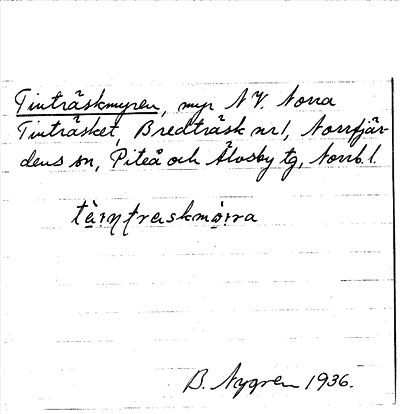 Tinträskmyren, myr N V. Norra
Tinträsket, Bredträsk nr 1, Norrfjär-
dens sn, Piteå och Älvsby tg, Norrb. l.
B. Nygren 1936.